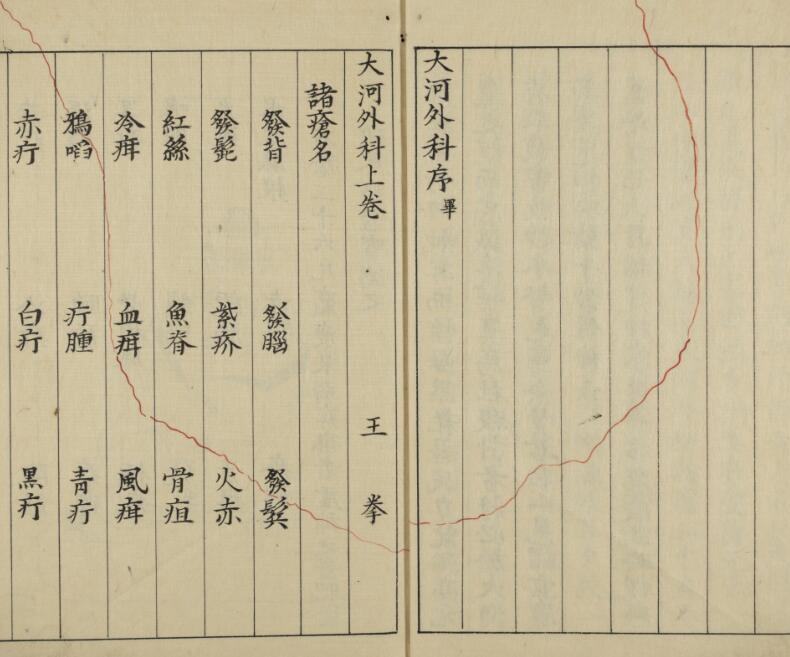 大河外科序 畢
大河外科上卷 王拳
諸瘡名
發背 發腦 發鬓
發髭 紫疥 火赤
紅絲 魚脊 骨疽
冷痺 血痺 風痺
鴉啗 疔腫 青疔
赤疔 白疔 黑疔